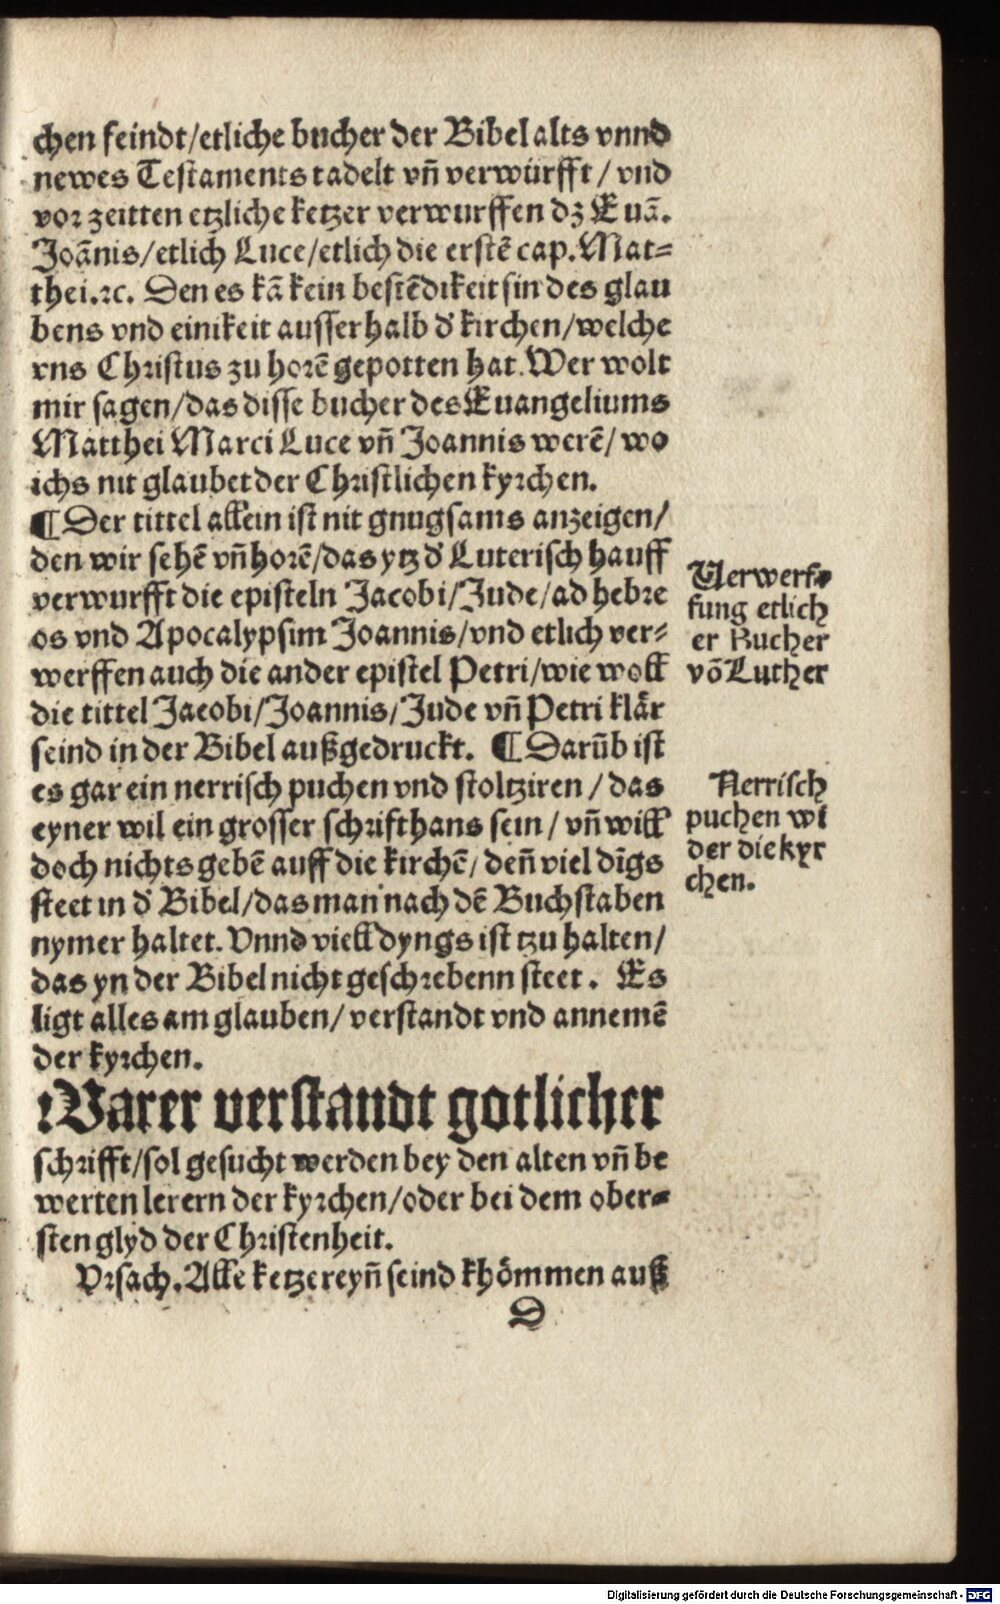 chen feindt/etliche bucher der Bibel alts vnnd
newes Testaments tadelt vñ verwürfft / vnd
vor zeitten etzliche ketzer verwurffen dz Euā.
Joānis/etlich Luce/etlich die erstē cap. Mat=
thei.ꝛc. Den es kā kein bestēdikeit sin des glau
bens vnd einikeit ausserhalb d' kirchen/welche
vns Christus zu horē gepotten hat. Wer wolt
mir sagen/das disse bucher des Euangeliums
Matthei Marci Luce vñ Joannis werē/ wo
ichs nit glaubet der Christlichen kyrchen.
¶ Der tittel allein ist nit gnugsams anzeigen/
den wir sehē vñ horē/das ytz d' Luterisch hauff
verwurfft die episteln Jacobi/Jude/ad hebre
os vnd Apocalypsim Joannis/vnd etlich ver=
werffen auch die ander epistel Petri/wie woll
die tittel Jacobi/Joannis/Jude vñ Petri klär
seind in der Bibel außgedruckt. ¶ Darūb ist
es gar ein nerrisch puchen vnd stoltziren / das
eyner wil ein grosser schrifthans sein / vñ will
doch nichts gebē auff die kirchē/ deñ viel dīgs
steet in d' Bibel/das man nach dē Buchstaben
nymer haltet. Vnnd viell dyngs ist tzu halten/
das yn der Bibel nicht geschrebenn steet. Es
ligt alles am glauben/ verstandt vnd annemē
der kyrchen.
Warer verstandt gotlicher
schrifft/sol gesucht werden bey den alten vñ be
werten lerern der kyrchen/oder bei dem ober=
sten glyd der Christenheit.
Vrsach. Alle ketzereyñ seind khömmen auß
D
Verwerf=
fung etlich
er Bucher
vō Luther
Nerrisch
puchen wi
der die kyr
chen.
Digitalisierung gefördert durch die Deutsche Forschungsgemeinschaft - DFG